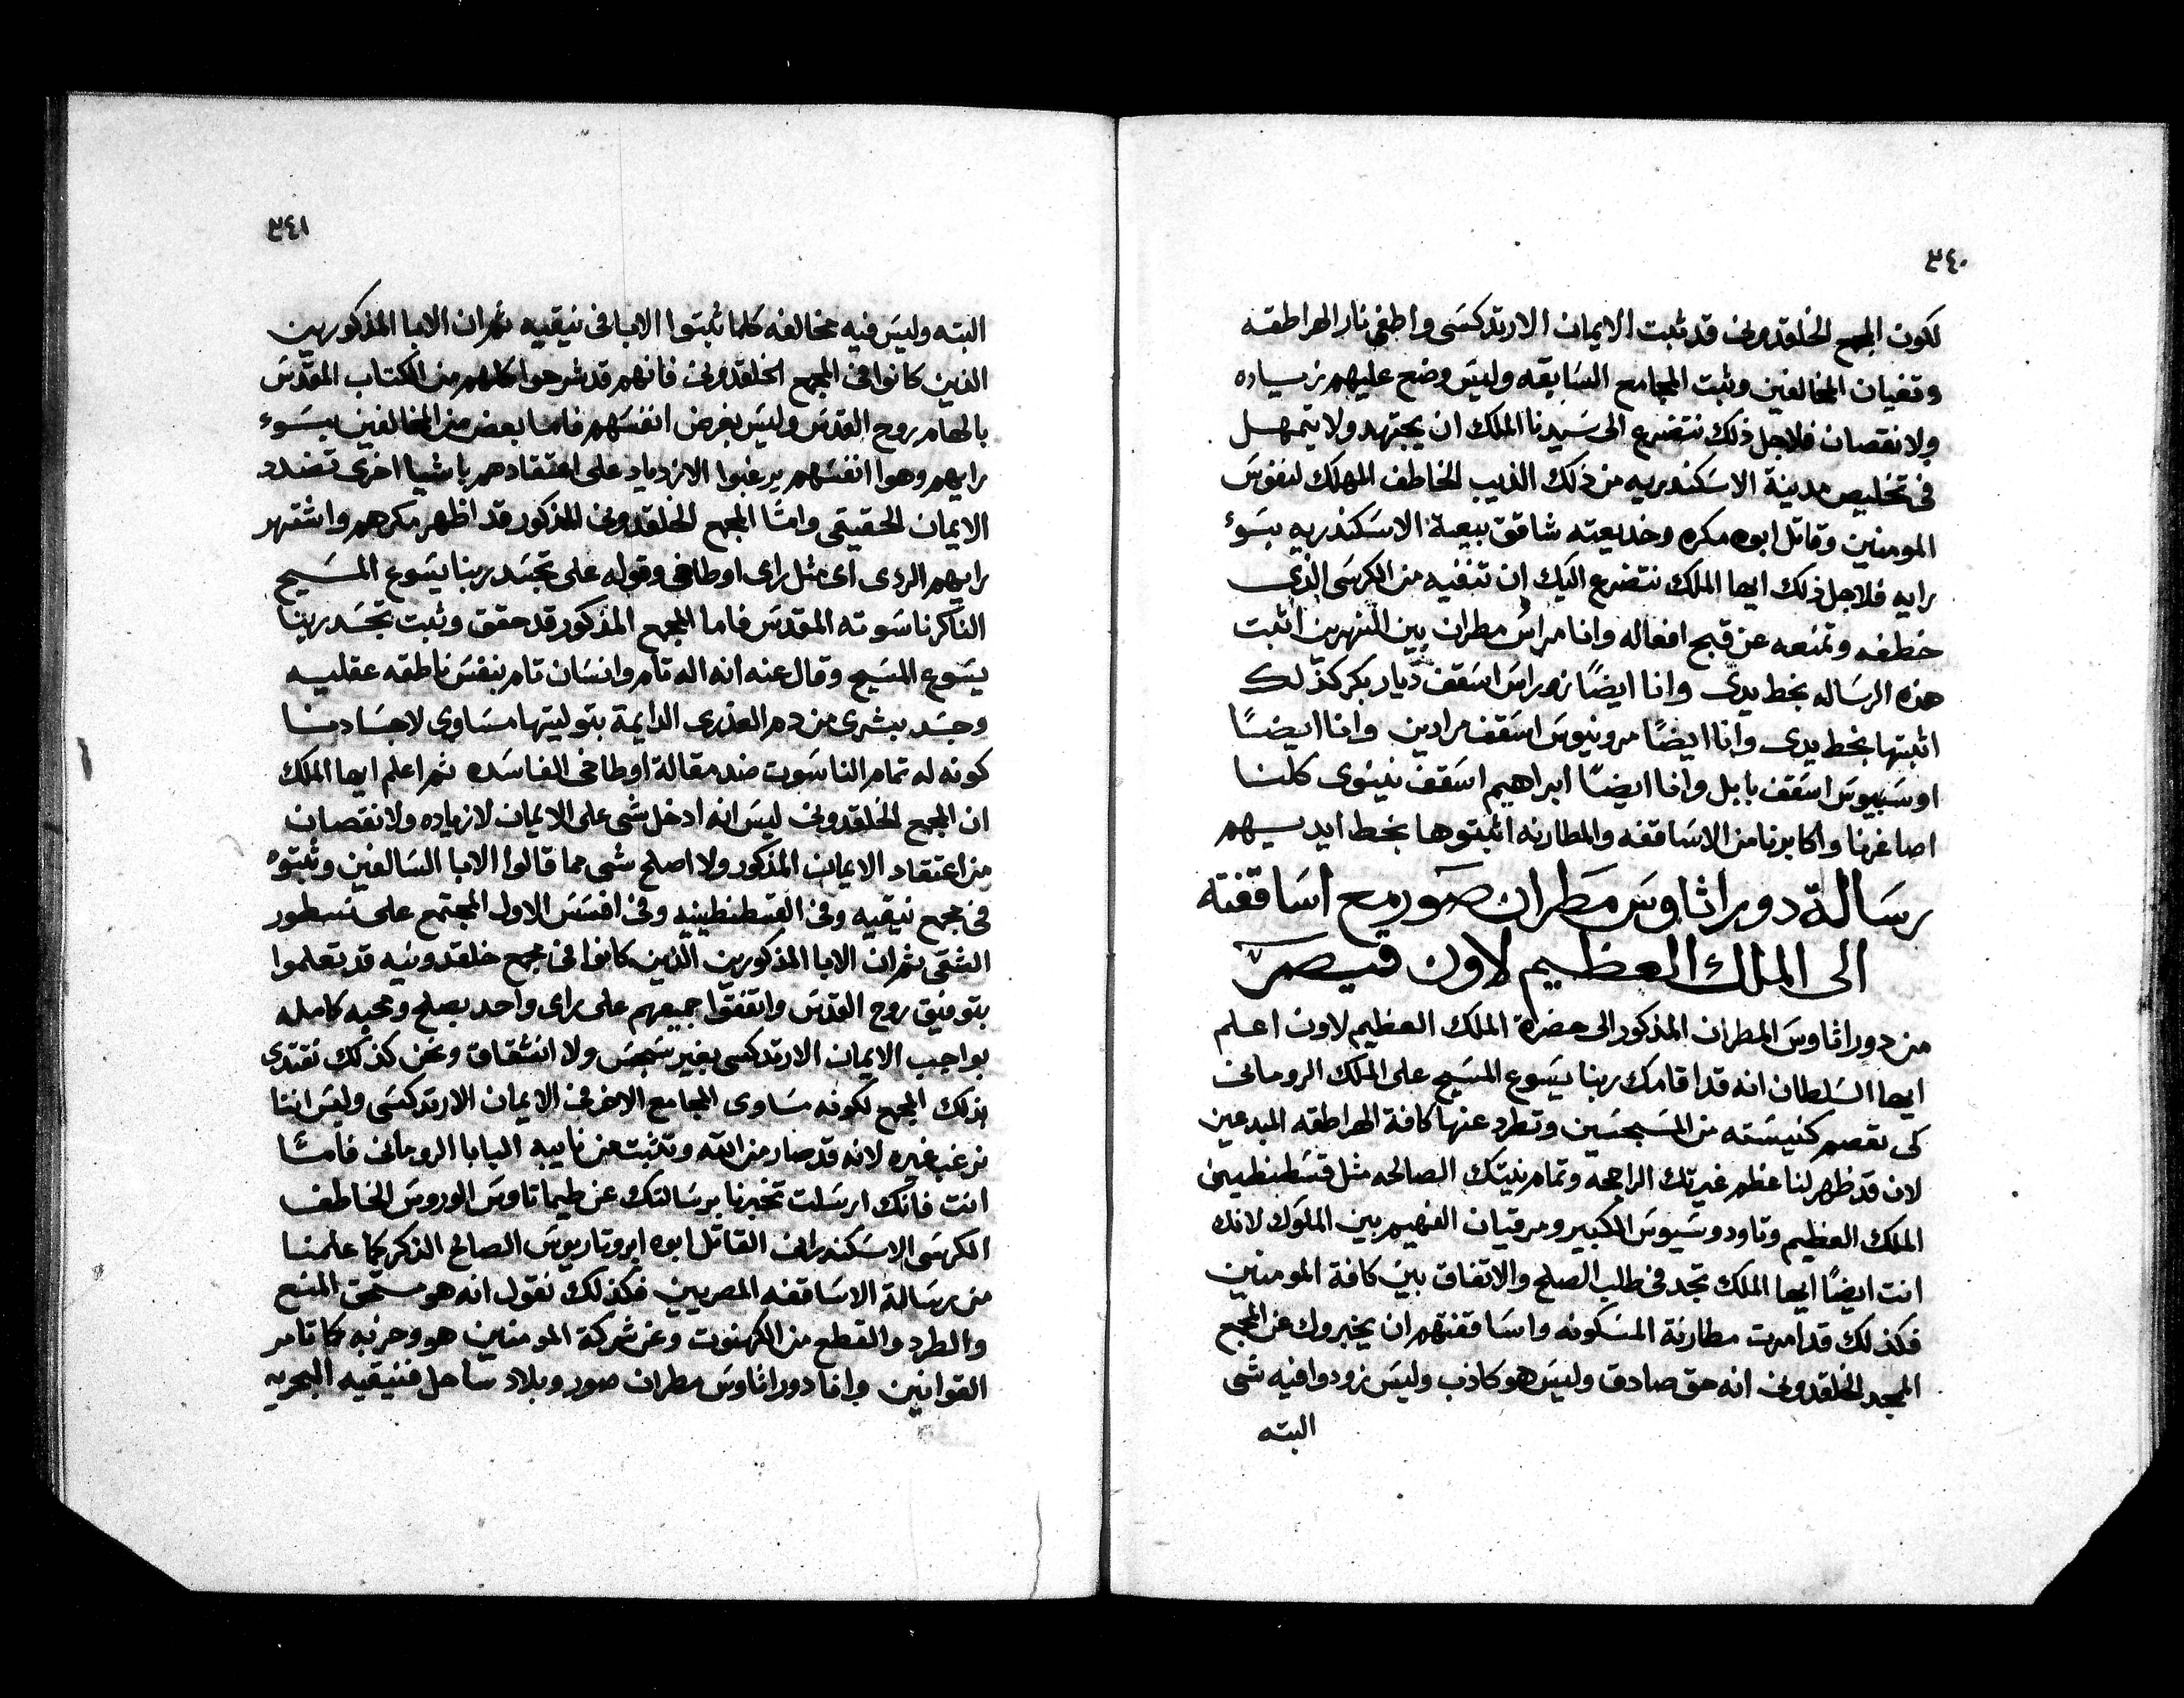 ٣٤٠
لكون المجمع الخلقدوني قد ثبت الايمان الارتدكسي واطفي نار الهراطقه
وتفيان المخالفين وثبت المجامع السابقه وليس وضع عليهم زيساده
ولا نقصان فلاجل ذلك نتضرع الى سيدنا الملك ان يجتهد ولا يتمهل
في تخليص مدينة الاسكندريه من ذلك الذيب الخاطف المهلك لنفوس
المومنين وقاتل ابوه مكره وخديعته شاقق بيعة الاسكندريه بسوء
رايه فلاجل ذلك ايها الملك نتضرع اليك ان تنفيه من الكرسي الذي
خطفه وتمنعه عن قبح افعاله وانا مراس مطران بين النهرين اثبت
هذه الرساله بخط يدي وانا ايضًا نوراس اسقف ديار بكر كذلك
اثبتها بخط يدي وانا ايضًا مرونيوس اسقف مرادين وانا ايضًا
اوسبيوس اسقف بابل وانا ايضًا ابراهيم اسقف نينوى كلنا
اصاغرنا واكابرنا من الاساقفه والمطارنه اثبتوها بخط ايديهم
رسالة دوراثاوس مطران صور مع اساقفته
الى الملك العظيم لاون قيصر
من دوراثاوس المطران المذكور الى حضرة الملك العظيم لاون اعلم
ايها السلطان انه قد اقامك ربنا يسوع المسيح على الملك الروماني
كى تعصم كنيسته من المسجسين وتطرد عنها كافة الهراطقه المبدعين
لان قد ظهر لنا عظم غيرتك الراجحه وتمام نيتك الصالحه مثل قسطنطين
الملك العظيم وتاودوسيوس الكبير ومرقيان الفهيم بين الملوك لانك
انت ايضًا ايها الملك تجد في طلب الصلح والاتفاق بين كافة المومنين
فكذلك قد امرت مطارنة المسكونه واساقفتهم ان يخبروك عن المجمع
المجد الخلقدوني انه حق صادق وليس هو كاذب وليس زودوا فيه شى
البته
٣٤١
البته وليس فيه مخالفه كلما ثبتوا الابا في نيقيه ثم ان الابا المذكورين
الذين كانوا في المجمع الخلقدوني فانهم قد شرحوا كلهم من الكتاب المقدس
بالهام روح القدس وليس بغرض انفسهم فاما بعض من المخالفين بسوء
رايهم وهوا انفسهم يرغبوا الازدياد على اعتقادهم باشيا اخرى تضدد
الايمان الحقيقي وامّا المجمع الخلقدوني المذكور قد اظهر مكرهم واشتهر
رايهم الردى اى مثل راى اوطاخي وقوله على تجسد ربنا يسوع المسيح
الناكر ناسوته المقدس فاما المجمع المذكور قد حقق وثبت تجسد ربنا
يسوع المسيح وقال عنه انه اله تام وانسان تام بنفس ناطقه عقليه
وجسد بشرى من دم العذرى الدايمة بتوليتها مساوى لاجسادنا
كونه له تمام الناسوت ضد مقالة اوطاخى الفاسده ثم اعلم ايها الملك
ان المجمع الخلقدوني ليس انه ادخل شى على الايمان لا زياده ولا نقصان
من اعتقاد الايمان المذكور ولا اصلح شى مما قالوا الابا السالفين وثبتوه
في مجمع نيقيه وفي القسطنطينيه وفي افسس الاول المجتمع على نسطور
الشقى ثم ان الابا المذكورين الذين كانوا في مجمع خلقدونيه قد تعلموا
بتوفيق روح القدس واتفقوا جميعهم على راى واحد بصلح ومحبه كامله
بواجب الايمان الارتدكسي بغير سجس ولا انشقاق ونحن كذلك نقتدى
بذلك المجمع لكونه مساوى المجامع الاخر في الايمان الارتدكسي وليس اننا
نرغب غيره لانه قد صار من الله وتثبت من نايبه البابا الروماني فامّا
انت فانك ارسلت تخبرنا برسالتك عن طيماتاوس الوروس الخاطف
الكرسى الاسكندراني القاتل ابوه ابروتاريوس الصالح الذكر كما علمنا
من رسالة الاساقفه المصريين فكذلك نقول انه هو مستحق المنع
والطرد والقطع من الكهنوت وعن شركة المومنين هو وحزبه كما تامر
القوانين وانا دوراثاوس مطران صور وبلاد ساحل فنيقيه البحريه